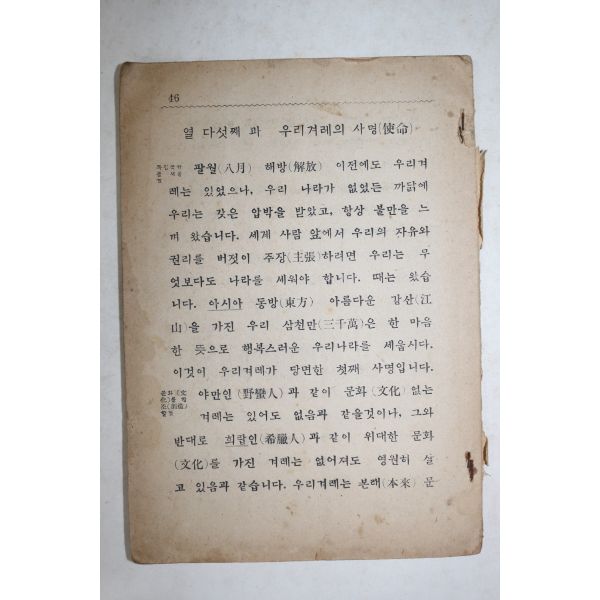 46
열 다섯째 과 우리겨레의 사명(使命)
팔월(八月) 해방(解放) 이전에도 우리겨
레는 있었으나, 우리 나라가 없었든 까닭에
우리는 갖은 압박을 받았고, 항상 불만을 느
껴 왔습니다. 세계 사람 앞에서 우리의 자유와
권리를 버젓이 주장(主張)하려면 우리는 무
엇보다도 나라를 세워야 합니다. 때는 왔습
니다. 아시아 동방(東方) 아름다운 강산(江
山)을 가진 우리 삼천만(三千萬)은 한 마음
한 뜻으로 행복스러운 우리나라를 세웁시다.
이것이 우리겨레가 당면한 첫째 사명입니다.
문화(文
化)를 힘
조(創造)
야만인(野蠻人)과 같이 문화(文化)없는
겨레는 있어도 없음과 같을것이나, 그와
반대로 희랍인(希臘人)과 같이 위대한 문화
(文化)를 가진 겨레는 없어져도 영원히 살
고 있음과 같습니다. 우리겨레는 본래(本來) 문